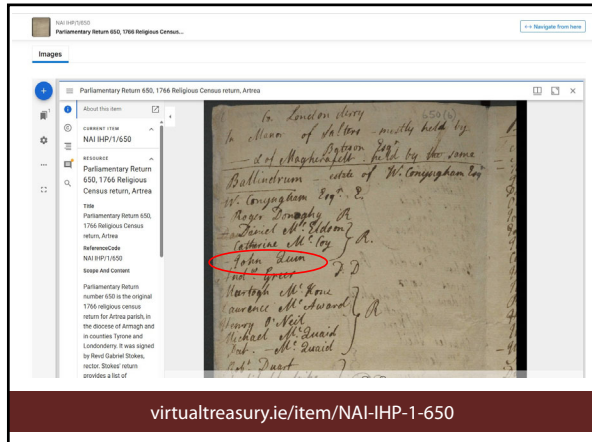 NAI IHP/1/650
Parliamentary Return 650, 1766 Religious Census...
Navigate from here
Images
Parliamentary Return 650, 1766 Religious Census return, Artrea
About this item
CURRENT ITEM
NAI IHP/1/650
RESOURCE
Parliamentary Return
650, 1766 Religious
Census return, Artrea
Title
Parliamentary Return 650,
1766 Religious Census
return, Artrea
ReferenceCode
NAI IHP/1/650
Scope And Content
Parliamentary Return
number 650 is the original
1766 religious census
return for Artrea parish, in
the diocese of Armagh and
in counties Tyrone and
Londonderry. It was signed
by Revd Gabriel Stokes,
rector. Stokes' return
provides a list of
Co. London derry 650(6)
In Manor of Salters - mostly held by
Bateson Esqr
& of Magherafelt - held by the same
Ballindrum - estate of W. Conyngham Esqr
W. Conyngham Esqr. E.
Roger Donaghy R
Daniel Mc Eldom
Catherine Mc Coy } R.
John Quin
Andw. Greer } D
Murtogh Mc Kone
Laurence Mc Award
Henry O'Neil } R
Michael Mc Quaid
Pat. Mc Quaid
Robt. Duart
virtualtreasury.ie/item/NAI-IHP-1-650